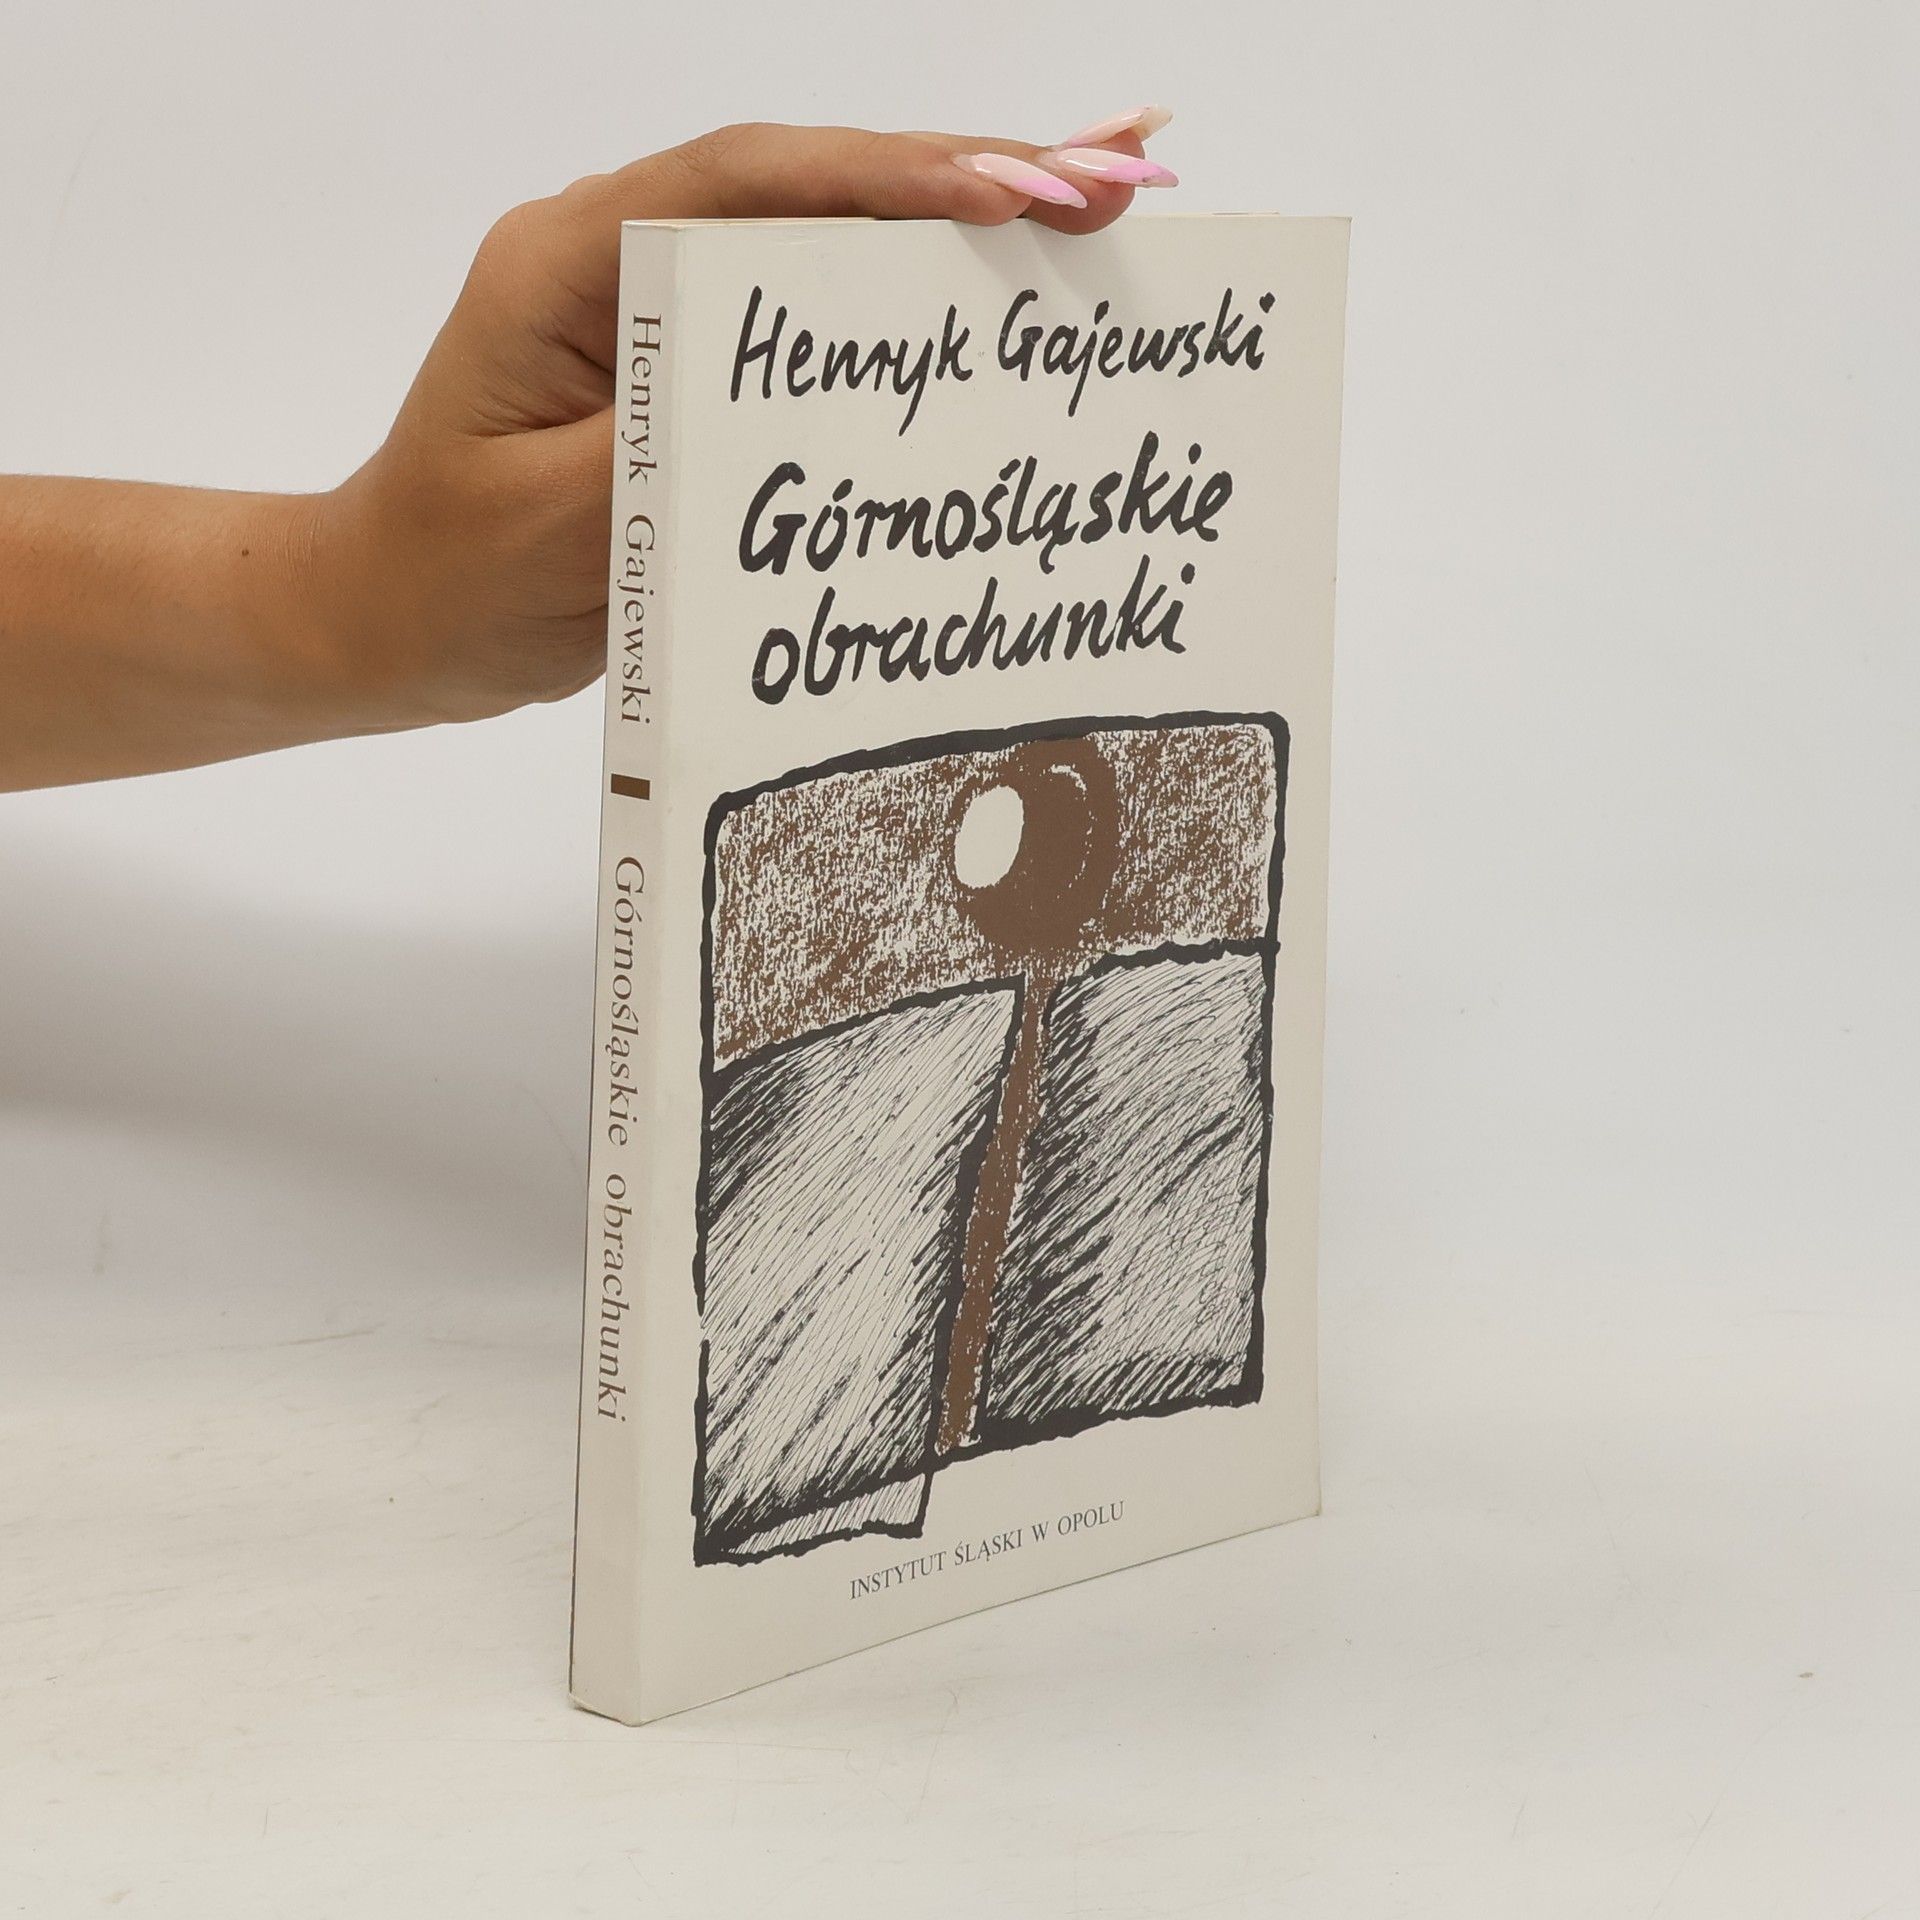 Henryk Gajewski
Górnośląskie
obrachunki
INSTYTUT ŚLĄSKI W OPOLU
Henryk Gajewski Górnośląskie obrachunki